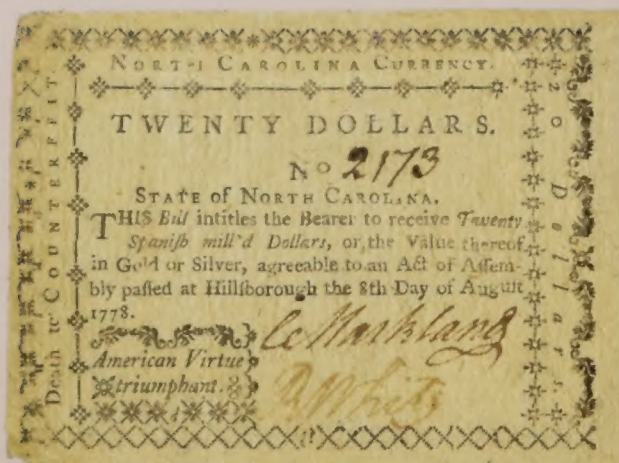 NORTH CAROLINA CURRENCY.
TWENTY DOLLARS.
No 2173
STATE of NORTH CAROLINA.
THIS Bill intitles the Bearer to receive Twenty
Spanish mill'd Dollars, or, the Value thereof
in Gold or Silver, agreeable to an Act of Assem-
bly passed at Hillsborough the 8th Day of August
1778.
American Virtue
triumphant.
C Markland
Death to COUNTERFEIT.
20 Dollars.